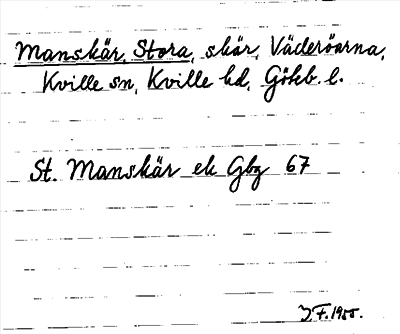 Manskär, Stora, skär, Väderöarna,
Kville sn, Kville hd, Göteb. l.
St. Manskär ek Gbg 67
J.F. 1955.